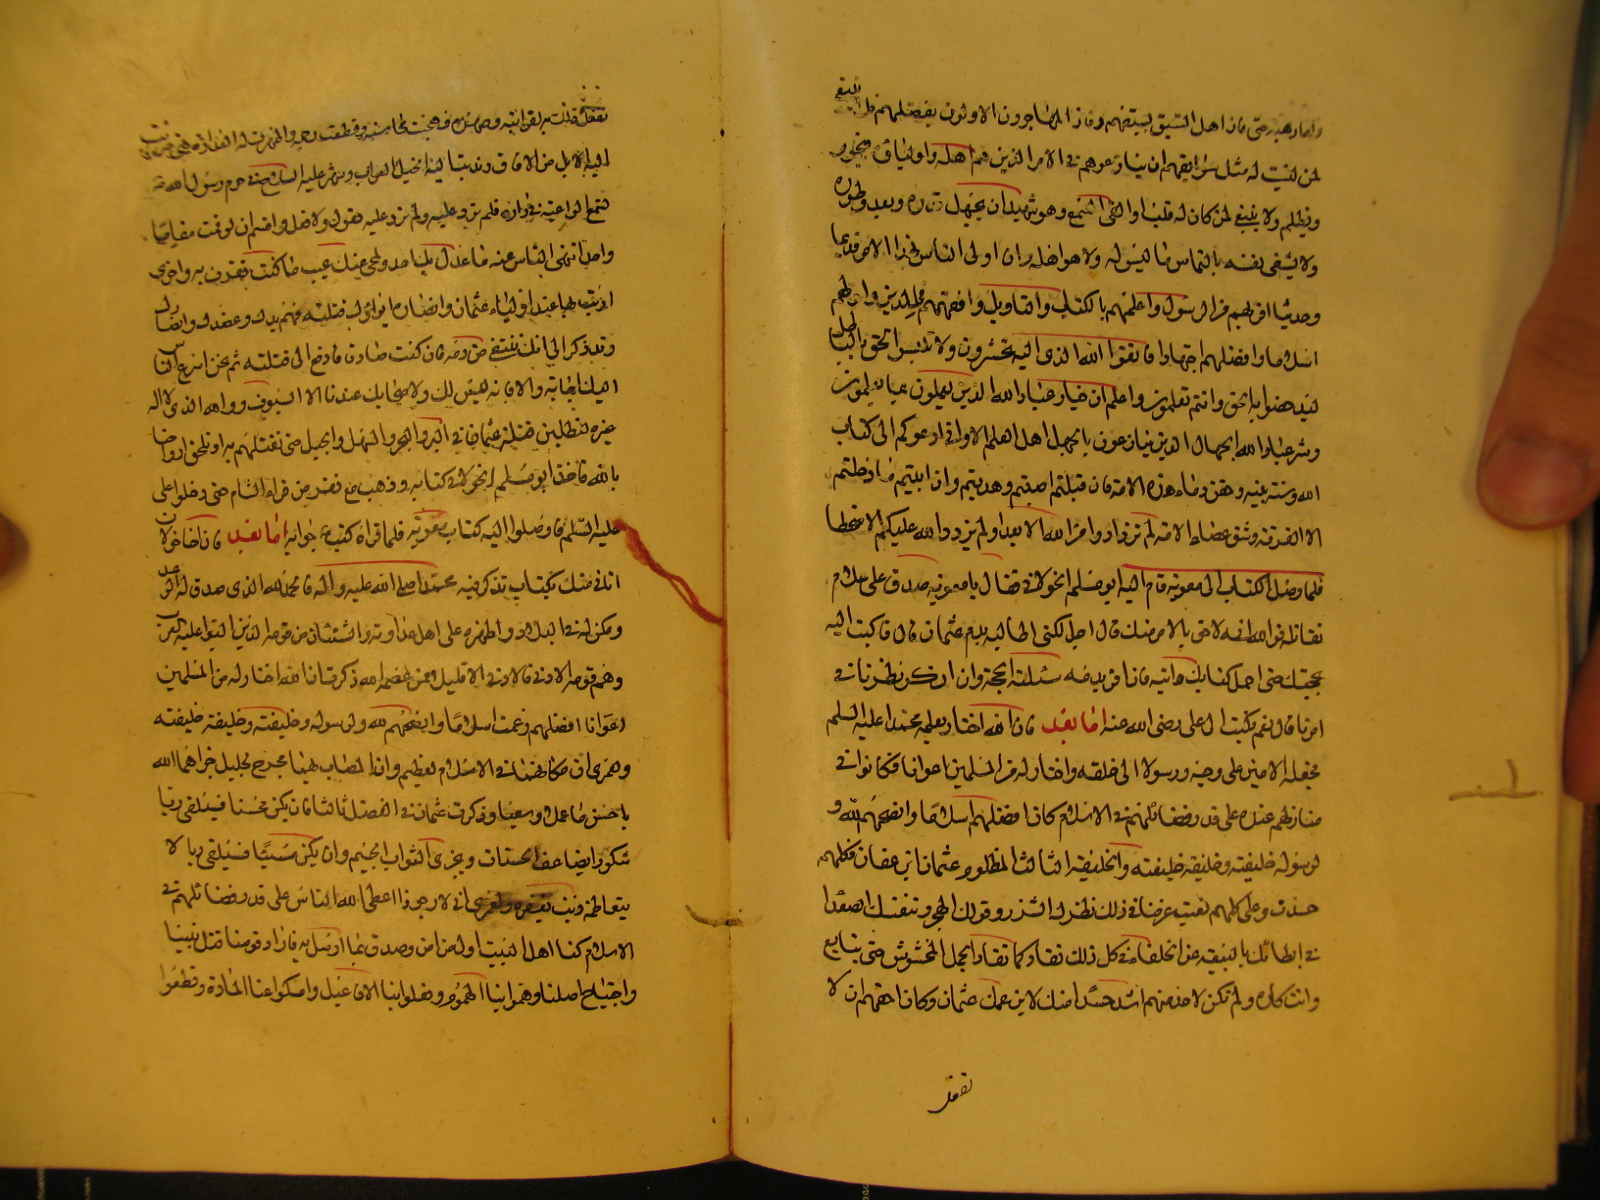 وامارهبه حتى فاز اهل السبق بسبقهم وفاز المهاجرون الاولون بفضلهم فلا ينبغي
لمن ليست له مثل سوابقهم ان ينازعوهم في الامر الذين هم اهله واولياؤه فيجور
ويظلم ولا ينبغي لمن كان له قلب او القى السمع وهو شهيد ان يجهل قدره ويعدو طوره
ولا يشقى نفسه بالتماس ما ليس له ولا هو اهله وان اولى الناس بهذا الامر قديما
وحديثا اقربهم من الرسول واعلمهم بالكتاب والتاويل وافقههم في الدين واولهم
اسلاما وافضلهم اجتهادا فاتقوا الله الذي اليه تحشرون ولا تلبسوا الحق بالباطل
ليدحضوا به الحق وانتم تعلمون واعلم ان خيار عباد الله الذين يعملون بما يعلمون
وشر عباد الله الجهال الذين ينازعون بالجهل اهل العلم الا واني ادعوكم الى كتاب
الله وسنة نبيه وحقن دماء هذه الامة فان قبلتم اصبتم وهديتم وان ابيتم
الا الفرقة وشق عصا الامة لم تزدادوا من الله الا بعدا ولم يزدد الله عليكم الا سخطا
فلما وصل الكتاب الى معوية قام اليه ابو مسلم الخولاني فقال يا معوية صدق علي علام
تقاتله فوالله انه لاحق بالامر منك قال اجل لكني اطالبه بدم عثمان قال فاكتب اليه
بحجتك حتى احمل كتابك واتيه فان اقر بدمه الحجة وان انكر نظرنا في
امرنا قال نعم فكتب الى علي رضي الله عنه اما بعد فان الله اختار بعلمه محمدا عليه السلم
فجعله الامين على وحيه ورسولا الى خلقه واختار له من المسلمين اعوانا فكانوا في
منازلهم عنده على قدر فضائلهم في الاسلام كان افضلهم اسلاما وانصحهم لله و
لرسوله خليفته وخليفة خليفته والخليفة الثالث المظلوم عثمان ابن عفان فكلهم
حسدت وعلى كلهم بغيت عرفنا في ذلك نظرك الشزر وقولك الهجر وتنفسك الصعدا
في ابطائك بالبيعة عن الخلفاء في كل ذلك تقاد كما تقاد الجمل المخشوش حتى بتابع
وانت كاره ولم تكن لاحد منهم اشد حسدا منك لابن عمك عثمان وكان احقهم ان لا
تفعل
تفعل ذلك به لقرابته وصهره فقبحت محاسنه وقطعت رحمه واظهرت له العداوة حتى ضربت
اليه الابل من الافاق وقدت اليه الخيل العراب وشهر عليه السلاح في حرم رسول الله
تسمع الواعية في داره فلم ترد عليه ولم ترد عليه بقول ولا فعل واقسم ان لو قمت مقاما
واحدا تنهى الناس عنه ما عدل بك احد ولمحى عنك عيب ما كنت تعرف به واخرى
انت بها عند اولياء عثمان وانصاره ايوائك قتلته فهم يدك وعضدك وانصارك
وقد ذكر لي انك تنتفي من دمه فان كنت صادق فادفع الى قتلته ثم نحن اسرع الناس
اليك اجابة والا فانه ليس لك ولاصحابك عندنا الا السيوف ووالله الذي لا اله
غيره لنطلبن قتلة عثمان في البر والبحر والسهل والجبل حتى نقتلهم به او تلحق ارواحنا
بالله فاخذ ابو مسلم الخولاني كتابه وذهب مع نفر من قراء الشام حتى دخلوا على
عليه السلم فاوصلوا اليه كتاب معوية فلما قراه كتب جوابه اما بعد فان اخا خولان
اتاني منك بكتاب تذكر فيه محمدا صلى الله عليه واله فالحمد لله الذي صدق له الوعد
ومكن له في البلاد واظهره على اهل عداوته والشنئان من قومه الذين البوا عليه العرب
وهم قومه الادنى فالادنى الا قليل ممن عصمه الله ذكرت ان الله اختار له من المسلمين
اعوانا افضلهم زعمت اسلاما وانصحهم لله ولرسوله وخليفته وخليفة خليفته
ولعمري ان مكانهما في الاسلام لعظيم وان المصاب بهما لجرح جليل جزاهما الله
باحسن ما عملا وسعيا وذكرت عثمان في الفضل ثالثا فان يكن محسنا فسيلقى ربا
شكورا يضاعف الحسنات ويجزي الثواب الجسيم وان يكن مسيئا فسيلقى ربا لا
يتعاظمه ذنب يغفره ولعمري اني لارجو اذا اعطى الله الناس على قدر فضائلهم في
الاسلام كنا اهل البيت اول من امن وصدق بما ارسل به فاراد قومنا قتل نبينا
واجتياح اصلنا وهموا بنا الهموم وفعلوا بنا الافاعيل وامسكوا عنا المادة وقطعوا